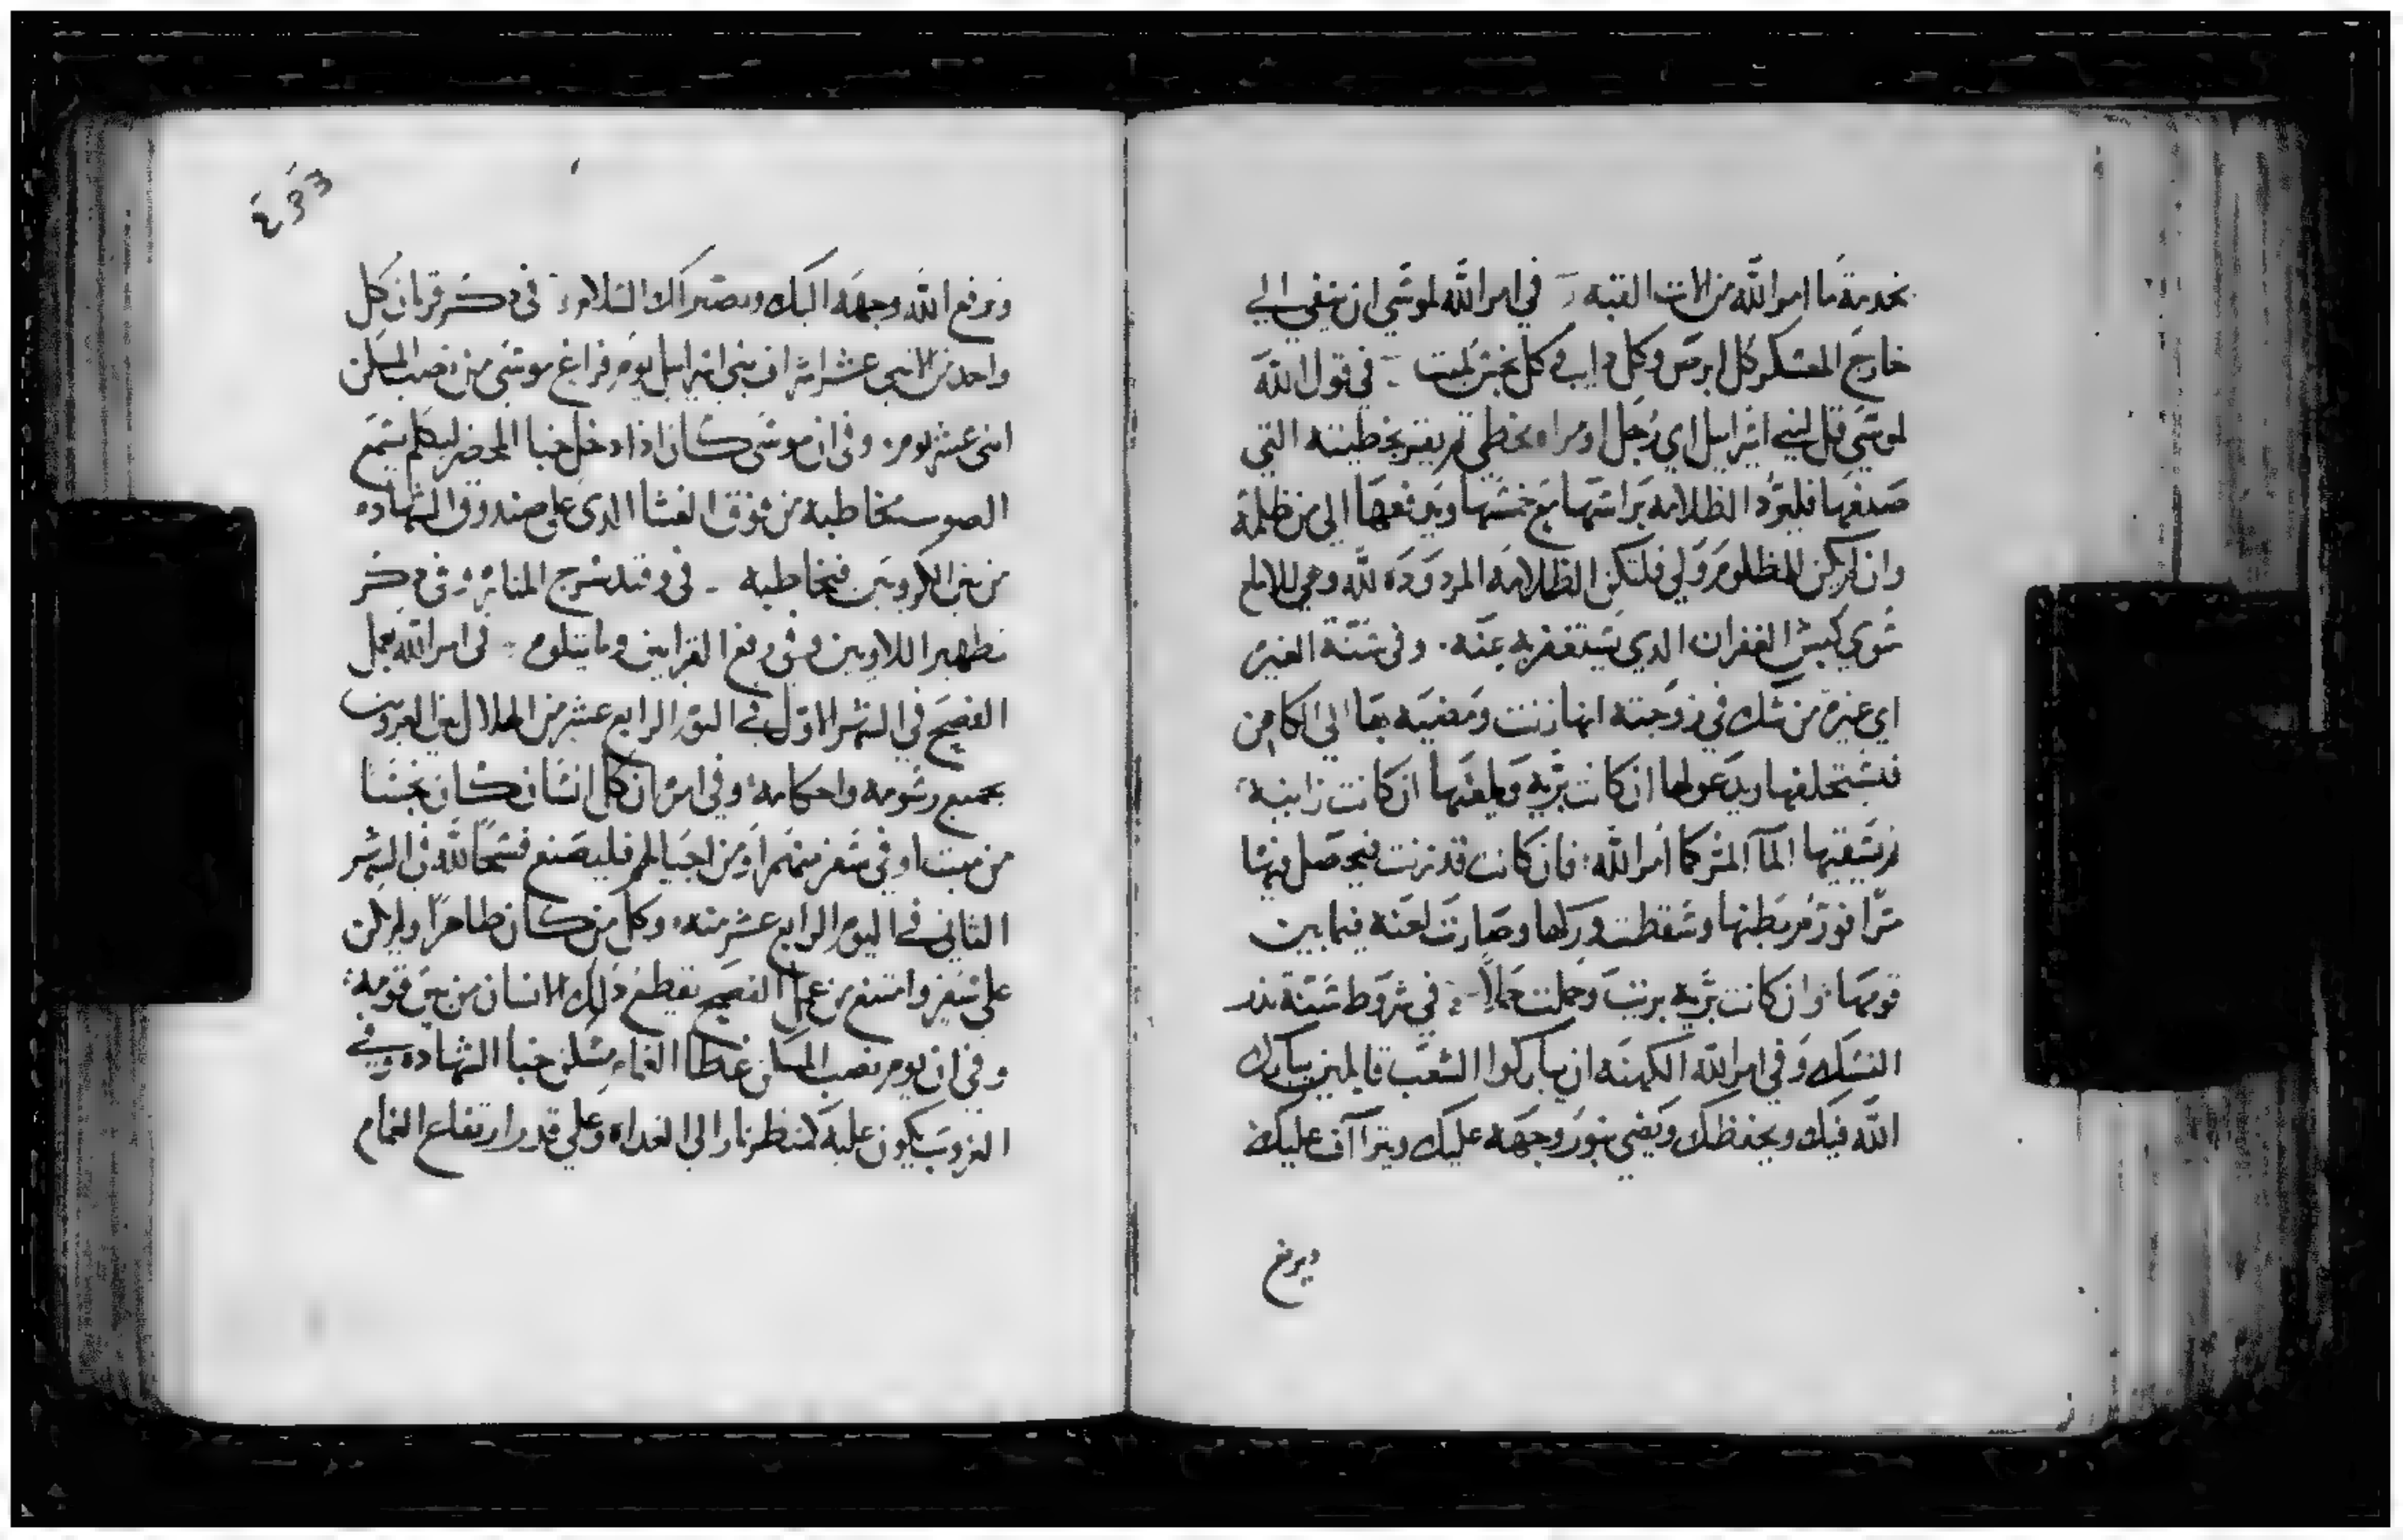 بخدمة ما امر الله من الات القبه في امر الله لموسي ان ينفي الي
خارج المعسكر كل ابرص وكل دايب وكل نجس لميت في قول الله
لموسي قل لبني اسراييل اي رجل او مراه يخطي ثم يقر بخطيته التي
صنعها فليرد الظلامه براسها مع خمسها ويدفعها الي من ظلمه
وان لم يكن للمظلوم ولي فلتكن الظلامه المردوده لله وهي للامام
سوي كبش الغفران الدي يستغفر به عنه وفي سنة الغيره
اي غيرة من شك في زوجته انها زنت ومضيه بها الي الكاهن
فيستحلفها ويدعو لها ان كانت بريه ويلعنها ان كانت زانيه
ثم يسقيها الما المر كما امر الله فان كانت قد زنت فيحصل فيها
سرا فورم بطنها وسقطت وركها وصارت لعنه فيما بين
قومها وان كانت بريه بريت وحملت حملا في شروط سنة ندر
النسك وفي امر الله الكهنه ان يباركوا الشعب قايلين يبارك
الله فيك ويحفظك ويضي بنور وجهه عليك ويتراأف عليك
ويرفع
ويرفع الله وجهه اليك ويصير لك السلام في دكر قربان كل
واحد من الاثني عشر اشراف بني اسراييل يوم فراغ موسي من نصب المسكن
اثني عشر يوم وفي ان موسي كان اذا دخل خبا المحضر ليكلم يسمع
الصوت يخاطبه من فوق الغشا الدي علي صندوق الشهاده
من بين الكروبين فيخاطبه في وقيد سرج المناره وفي دكر
تطهير اللاويين وفي رفع القرابين وما يتلوه في امر الله بعمل
الفصح في الشهر الاول في اليوم الرابع عشر من الهلال بين الغروبين
بجميع رسومه واحكامه وفي امره ان كل انسان كان نجسا
من ميت او في سفر منهم او من اجيالهم فليصنع فسحا لله في الشهر
الثاني في اليوم الرابع عشر منه وكل من كان طاهرا ولم يكن
علي سفر وامتنع من عمل الفصح يقطع ذلك الانسان من بين قومه
وفي ان يوم نصب المسكن غطا الغمام مسكن خبا الشهاده وفي
الغروب يكون عليه كمنظر نار الي الغداه وعلي قدر ارتفاع الغمام